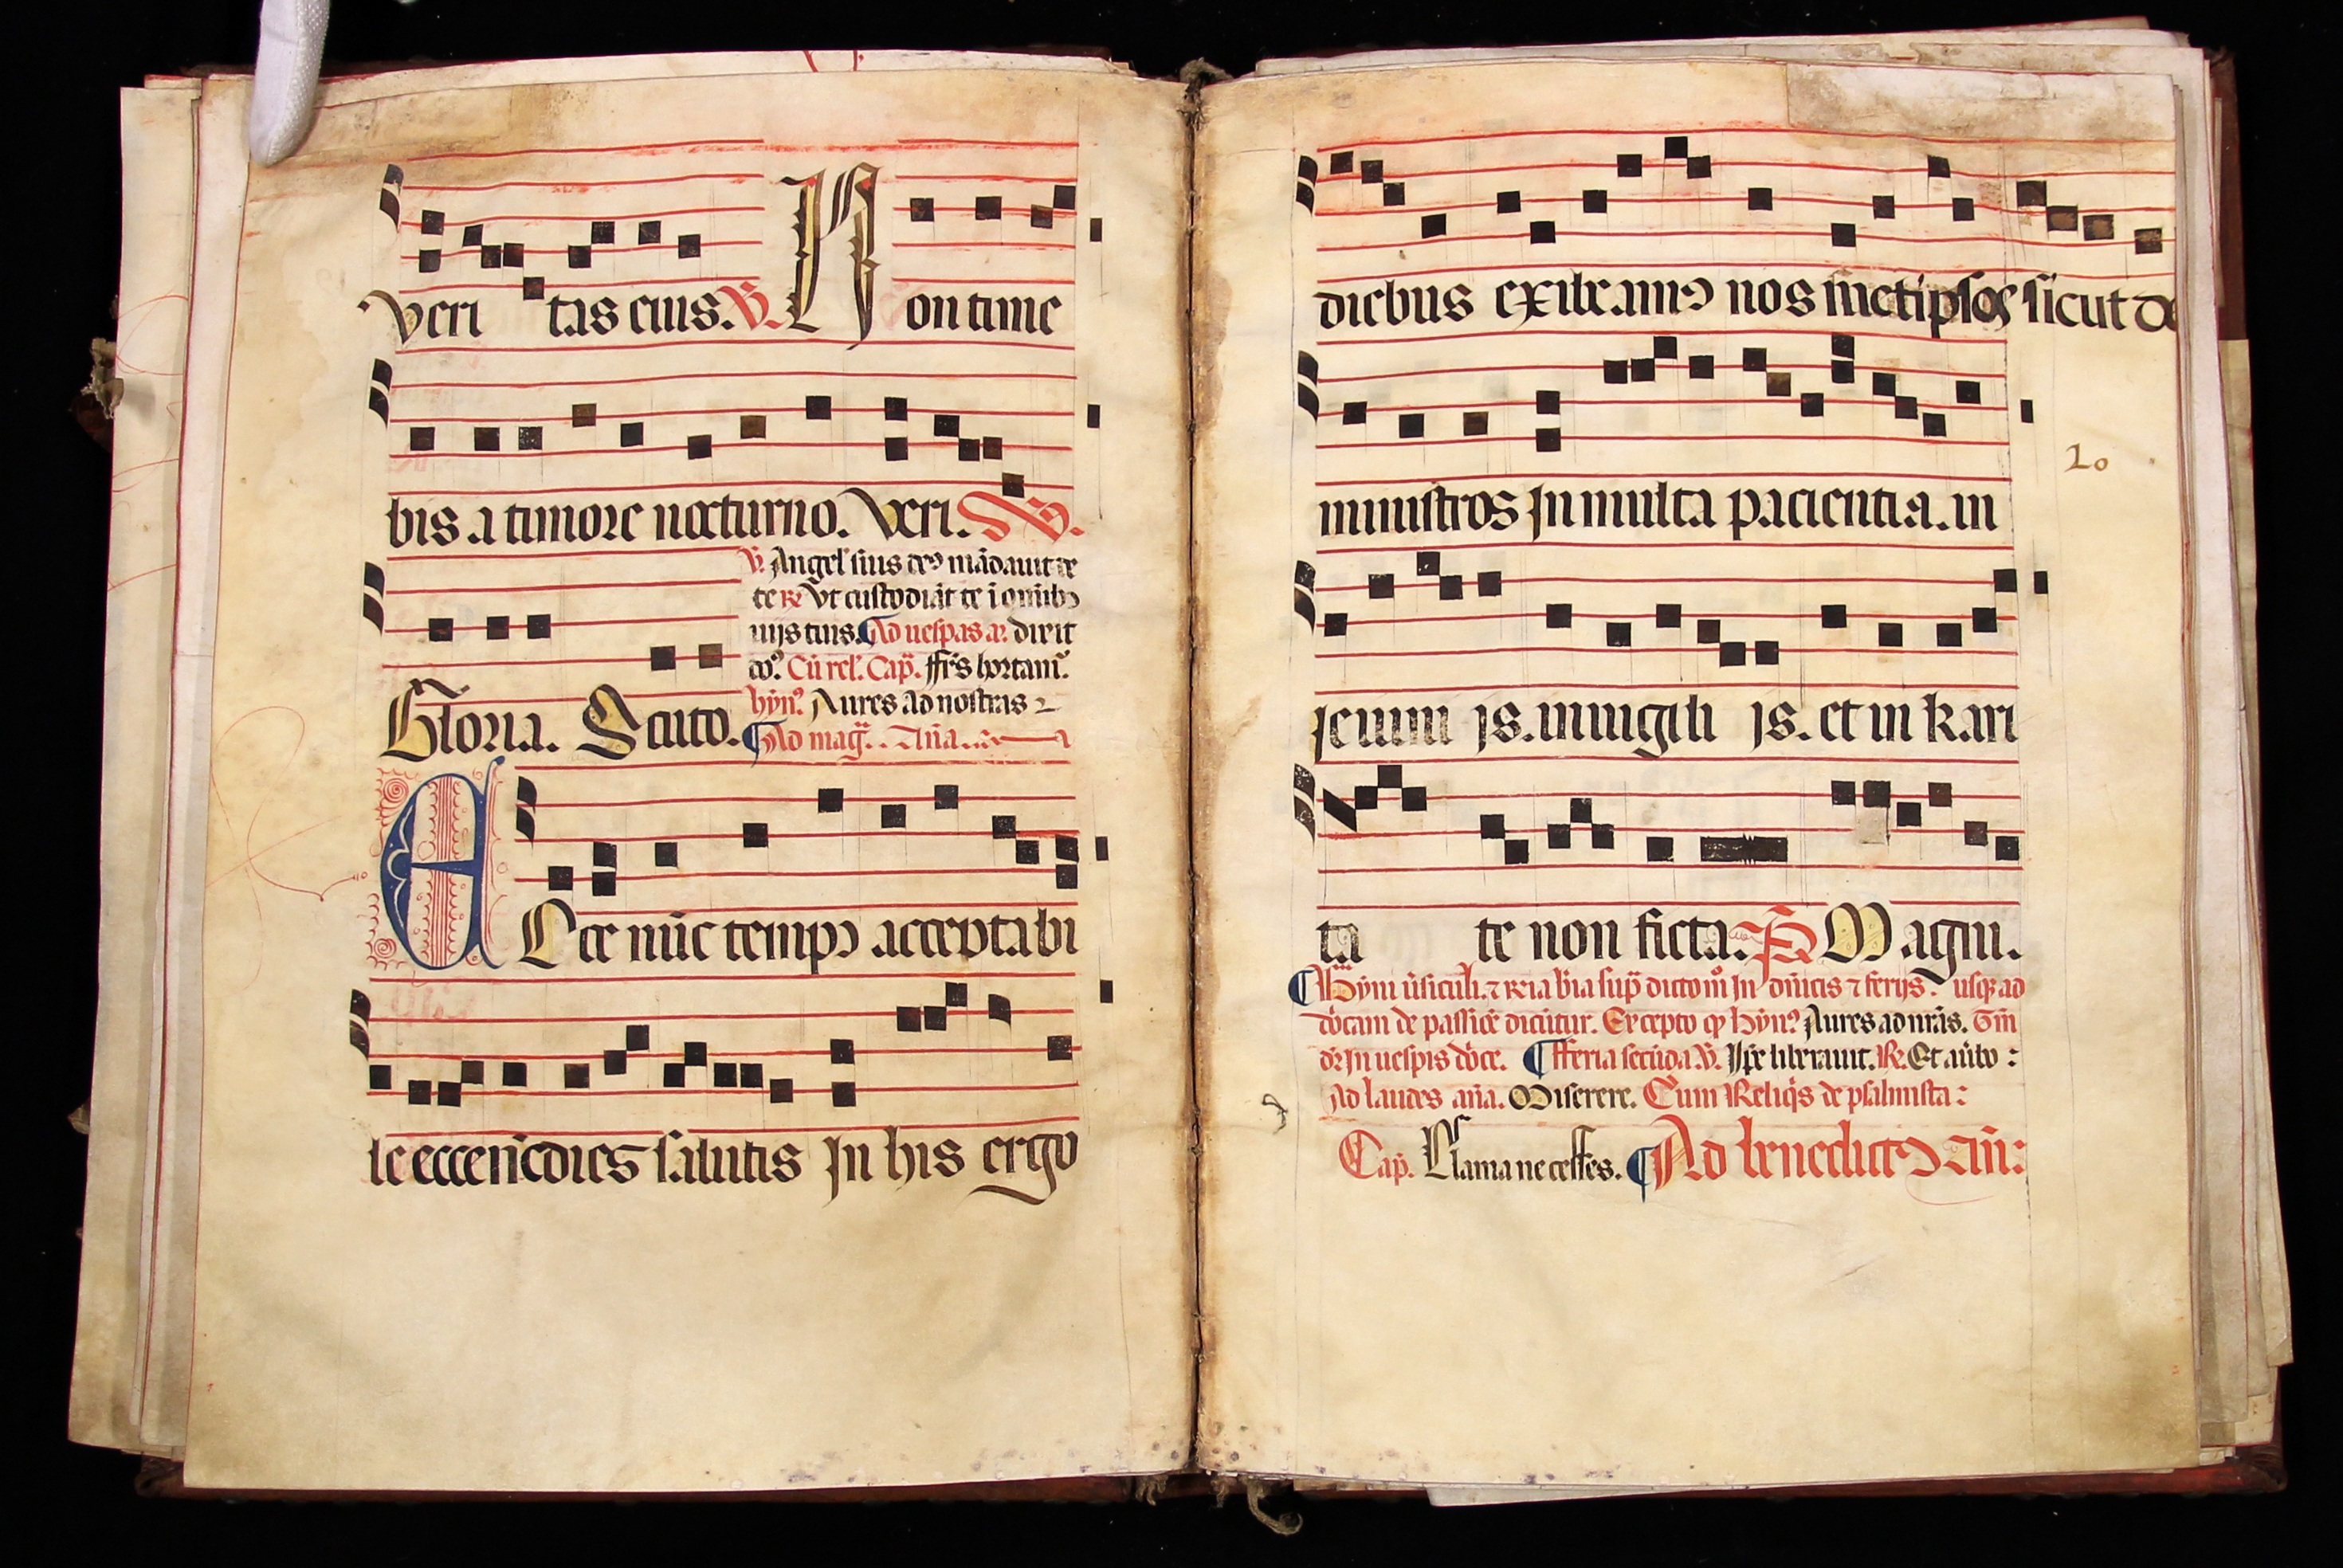 veri tas eius. V. Non time
bis a timore nocturno. Veri. V.
V. Angel' suis de9 mādauit de
te R Vt custodiāt te ī omib9
uijs tuis. Ad uesp̄as a. dixit
do9. Cū rel'. Cap̄. ffr̄s hortam̄.
hȳn9. Aures ad nostras
Gloria. Scuto. Ad maḡ. Añа.
Ecce nūc temp9 acceptabi
le ecce nūc dies salutis In his ergo
diebus exibeam9 nos metipsos sicut de
20
ministros In multa paciencia. in
ieiuni is. in uigili is. et in kari
ta te non ficta. P̄s Magni.
Hȳm ūsiculi. ⁊ R̄ia b̄ia sup̄ dicto m̄ In dn̄icis ⁊ ferijs. usq ad
dōcam de passiōe dicūtur. Excepto q hȳn9 Aures ad nr̄as. Tm̄
dr̄ In uesp̄is dōce. fferia secūda. V. Ip̄e liberauit. R. Et aūbo :
Ad laudes an̄a. Miserere. Cum Reliq̄s de psalmista :
Cap̄. Clama ne cesses. Ad benedict9 an̄: